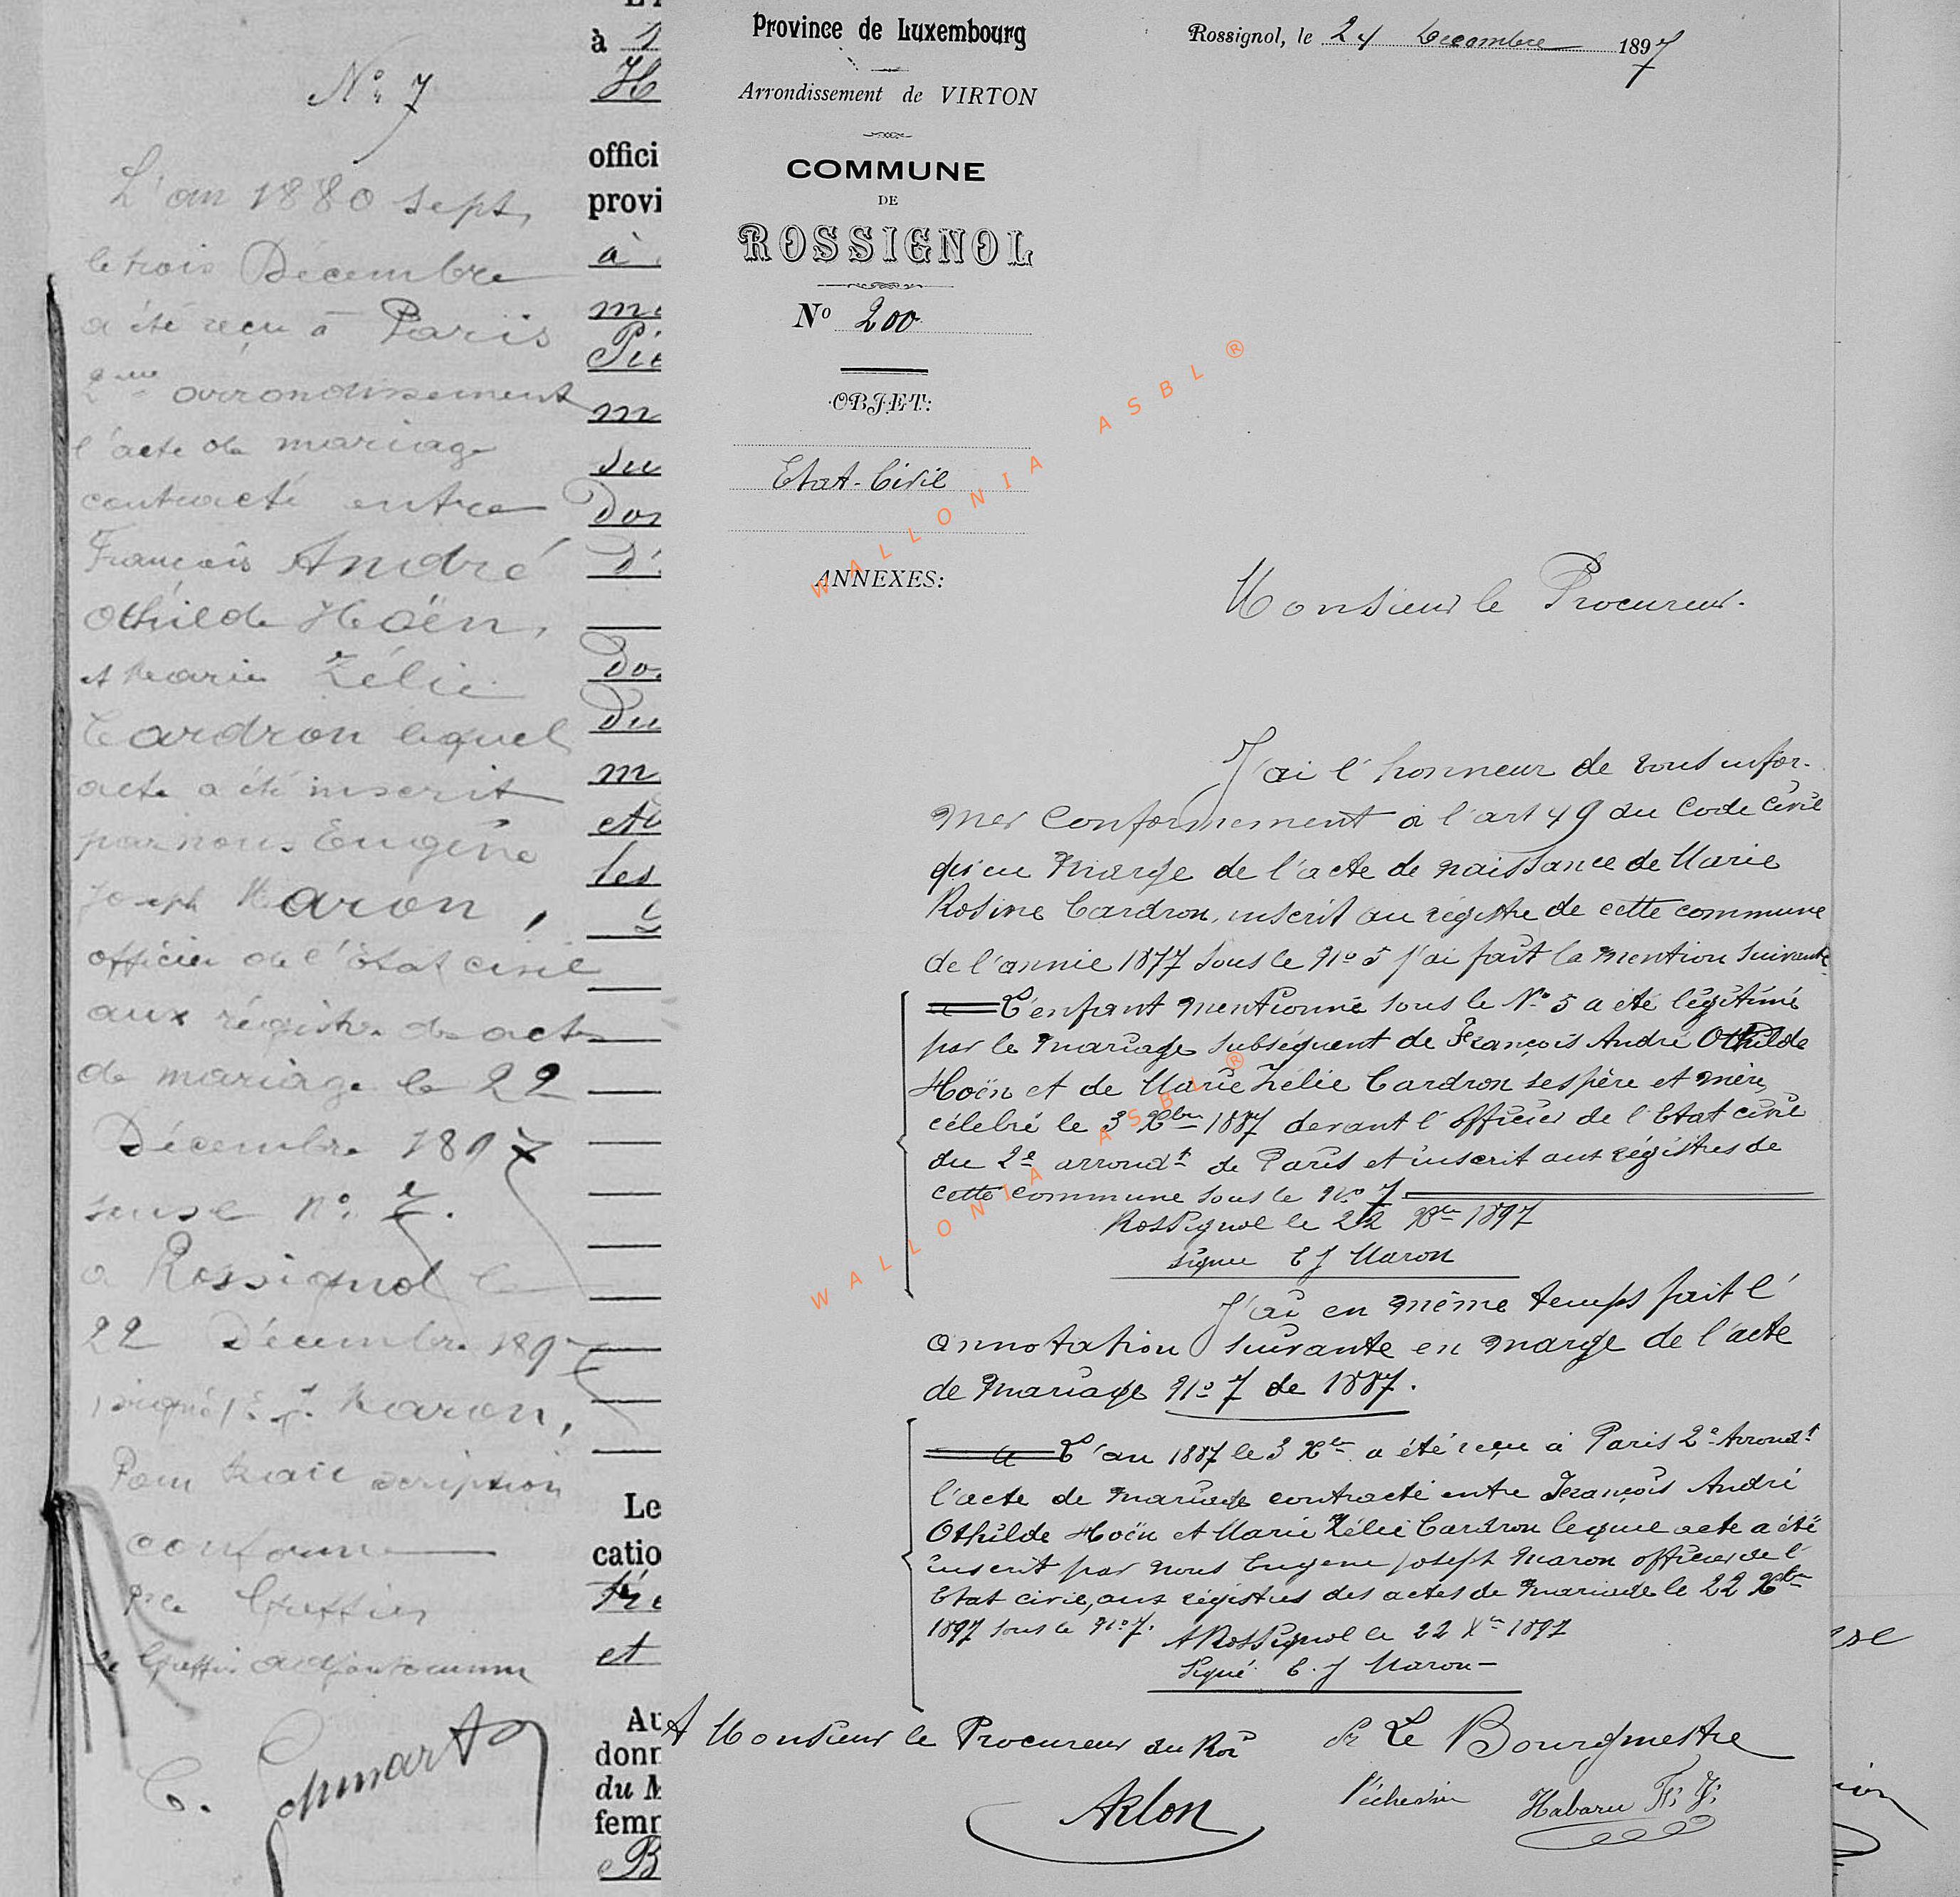 No 7
L'an 1880 sept,
le trois Décembre
a été reçu à Paris
2me arrondissement
l'acte de mariage
contracté entre
François André
Othilde Hoën,
et Marie Zélie
Cardron lequel
acte a été inscrit
par nous Eugène
Joseph Maron,
officier de l'état civil
aux régistre des acte
de mariage le 22
Décembre 1897
sous le no 7.
a Rossignol le
22 Décembre 1897
signé E. J. Maron,
Pour transcription
conforme
Le Greffier
C.
à
offici
provi
à
Pie
m
du
Do
Du
m
les
Le
catio
et
Au
donn
du M
femr
B
Province de Luxembourg
Arrondissement de VIRTON
COMMUNE
DE
ROSSIGNOL
No 200
OBJET:
Etat-Civil
ANNEXES:
Rossignol, le 24 Decembre 1897
Monsieur le Procureur.
J'ai l'honneur de vous infor-
mer conformement à l'art 49 du Code Civil
qu'en marge de l'acte de naissance de Marie
Rosine Cardron, inscrit au régistre de cette commune
de l'année 1877 sous le No 5 j'ai fait la mention suivante
L'enfant mentionné sous le No 5 a été légitimé
par le mariage subséquent de François André Othilde
Hoën et de Marie Zélie Cardron ses père et mère,
célebré le 3 Xbre 1887 devant l'officier de l'Etat civil
du 2e arrondt de Paris et inscrit aux régistres de
cette commune sous le No 7
Rossignol le 22 Xbre 1897
signé E J Maron
J'ai en même temps fait l'
annotation suivante en marge de l'acte
de mariage No 7 de 1887.
L'an 1887 le 3 Xbre a été reçu à Paris 2e Arrondt
l'acte de mariage contracté entre François André
Othilde Hoën et Marie Zélie Cardron lequel acte a été
inscrit par nous Eugene Joseph Maron officier de l'
Etat civil, aux régistres des actes de mariage le 22 Xbre
1897 sous le No 7.
A Rossignol le 22 Xbre 1897
Signé E. J Maron
A Monsieur le Procureur du Roi
Arlon
Le Bourgmestre
l'échevin
Habaru
WALLONIA ASBL ®
WALLONIA ASBL ®